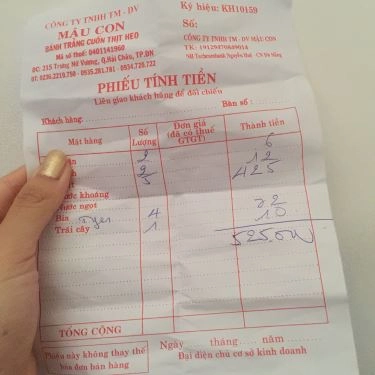 CÔNG TY TNHH TM - DV
MẬU CON
BÁNH TRÁNG CUỐN THỊT HEO
Mã số thuế: 0401141960
ĐC: 215 Trưng Nữ Vương, Q.Hải Châu, TP.ĐN
ĐT: 0236.2210.758 - 0935.281.781 - 0934.726.722
Ký hiệu: KH10159
Số:
CÔNG TY TNHH TM - DV MẬU CON
TK: 19129470849014
NH Techcombank Nguyễn Huệ - CN Đà Nẵng
PHIẾU TÍNH TIỀN
Liên giao khách hàng để đối chiếu
Khách hàng: Bàn số:
Mặt hàng Số Lượng Đơn giá (đã có thuế GTGT) Thành tiền
2 6
2 12
5 425
khoáng
Nước ngọt
Bia 4 72
Trái cây 1 10
525.000
TỔNG CỘNG
Phiếu này không thay thế
hóa đơn bán hàng
Ngày tháng năm
Đại diện chủ cơ sở kinh doanh